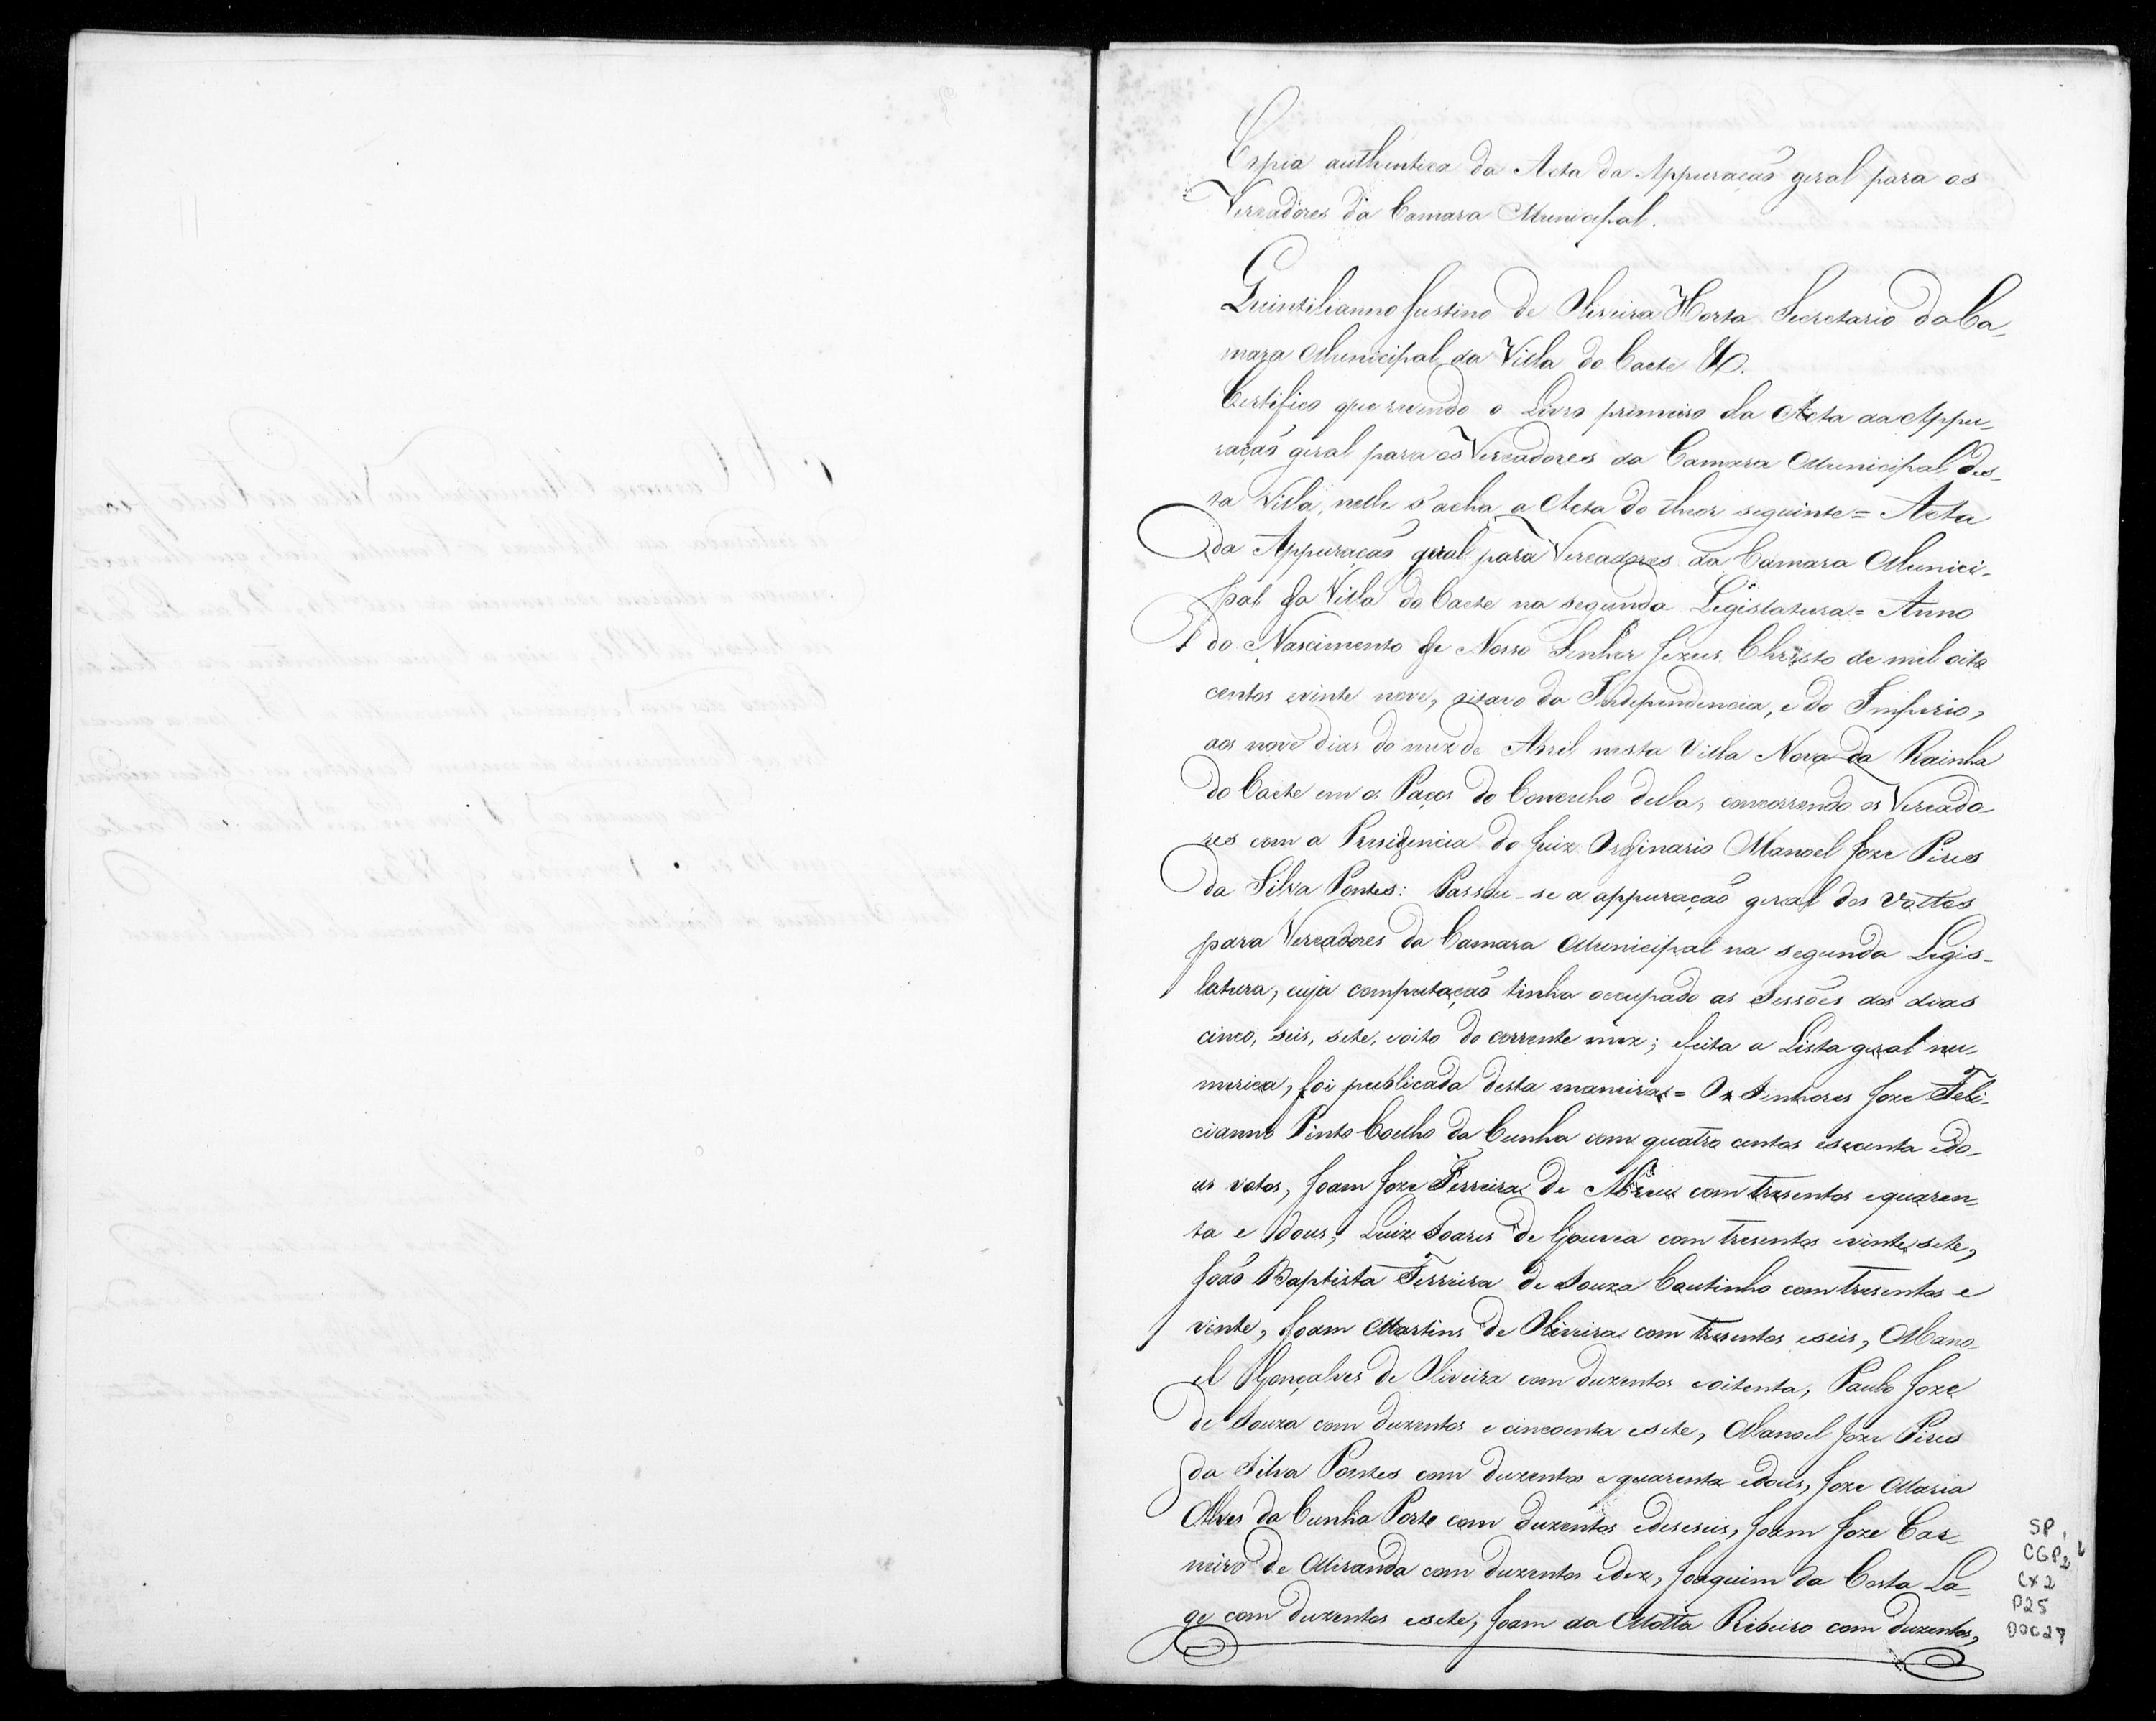 Copia authentica da Acta da Appuração geral para os
Vereadores da Camara Municipal.
Quintilianno Justino de Oliveira Horta Secretario da Ca-
mara Municipal da Villa do Caete &.
Certifico que revendo o Livro primeiro da Acta da Appu-
ração geral para os Vereadores da Camara Municipal des-
ta Villa, nelle s'acha a Acta do theor seguinte = Acta
da Appuração geral para Vereadores da Camara Munici-
pal da Villa do Caete na segunda Legislatura = Anno
do Nascimento de Nosso Senhor Jezus Christo de mil oito
centos evinte nove, oitavo da Independencia, e do Imperio,
aos nove dias do mez de Abril nesta Villa Nova da Rainha
do Caete em os Paços do Concelho della, concorrendo os Vereado-
res com a Presidencia do Juiz Ordinario Manoel Joze Pires
da Silva Pontes: Passou-se a appuração geral dos vottos
para Vereadores da Camara Municipal na segunda Legis-
latura, cuja computação tinha occupado as Sessões dos dias
cinco, seis, sete, eoito do corrente mez; efeita a Lista geral nu-
merica, foi publicada desta maneira = Os Senhores Joze Feli-
cianno Pinto Coelho da Cunha com quatro centos esecenta edo-
us votos, Joam Joze Ferreira de Abreu com tresentos equaren-
ta e dous, Luiz Soares de Gouvea com tresentos evinte, sete,
João Baptista Ferreira de Souza Coutinho com tresentos e
vinte, Joam Martins de Oliveira com tresentos eseis, Mano-
el Gonçalves de Oliveira com duzentos eoitenta, Paulo Joze
de Souza com duzentos e cincoenta esete, Manoel Joze Pires
da Silva Pontes com duzentos e quarenta edous, Joze Maria
Alves da Cunha Porto com duzentos edeseseis, Joam Joze Car-
neiro de Miranda com duzentos edez, Joaquim da Costa La-
ge com duzentos esete, Joam da Motta Ribeiro com duzentos,
SP
CGP2
CX2
P25
DOC27